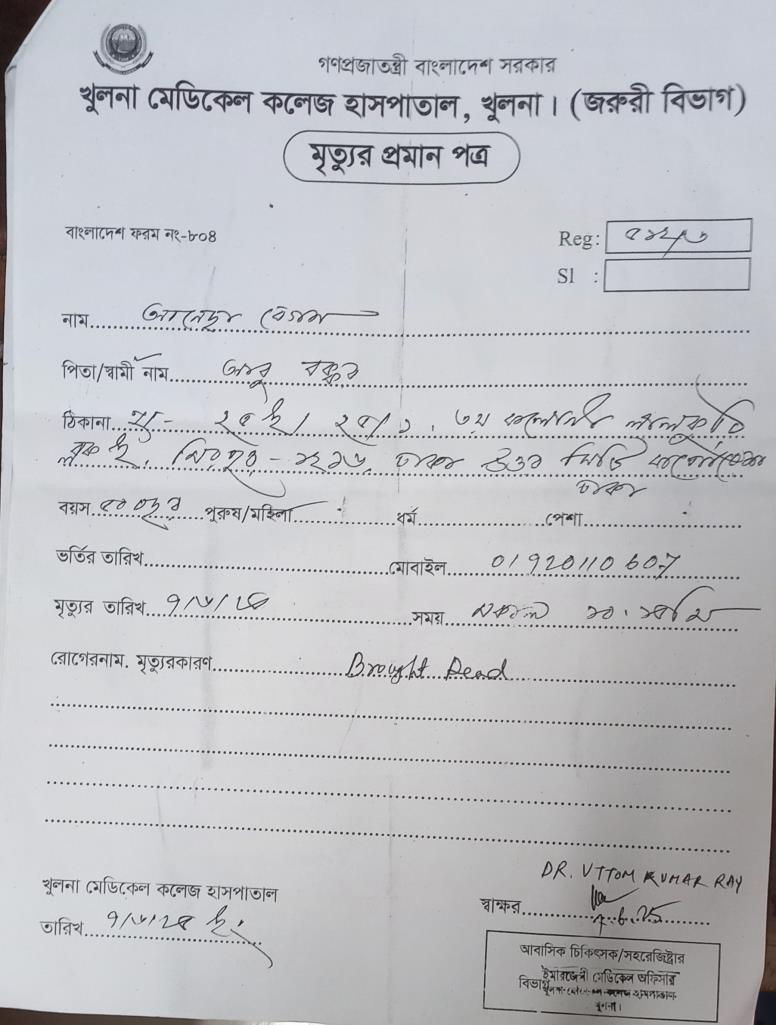 গণপ্রজাতন্ত্রী বাংলাদেশ সরকার
খুলনা মেডিকেল কলেজ হাসপাতাল, খুলনা। (জরুরী বিভাগ)
মৃত্যুর প্রমান পত্র
বাংলাদেশ ফরম নং-৮০৪
Reg:
Sl :
নাম......... বেগম
পিতা/স্বামী নাম......... আবু বক্কর
ঠিকানা
ব্লক ই, মিরপুর - ১২১৬, ঢাকা উত্তর সিটি কর্পোরেশন
ঢাকা
বয়স... পুরুষ/মহিলা.........ধর্ম.........পেশা.........
ভর্তির তারিখ.........মোবাইল... 01920110607
মৃত্যুর তারিখ... ৭/৬/২৫ .........সময়... সকাল
রোগেরনাম, মৃত্যুরকারণ......... Brought Dead
খুলনা মেডিকেল কলেজ হাসপাতাল
তারিখ... ৭/৬/২৫ ইং
DR. UTTOM KUMAR RAY
স্বাক্ষর.........
7.6.25
আবাসিক চিকিৎসক/সহরেজিষ্ট্রার
ইমারজেন্সী মেডিকেল অফিসার
বিভাগ
খুলনা।